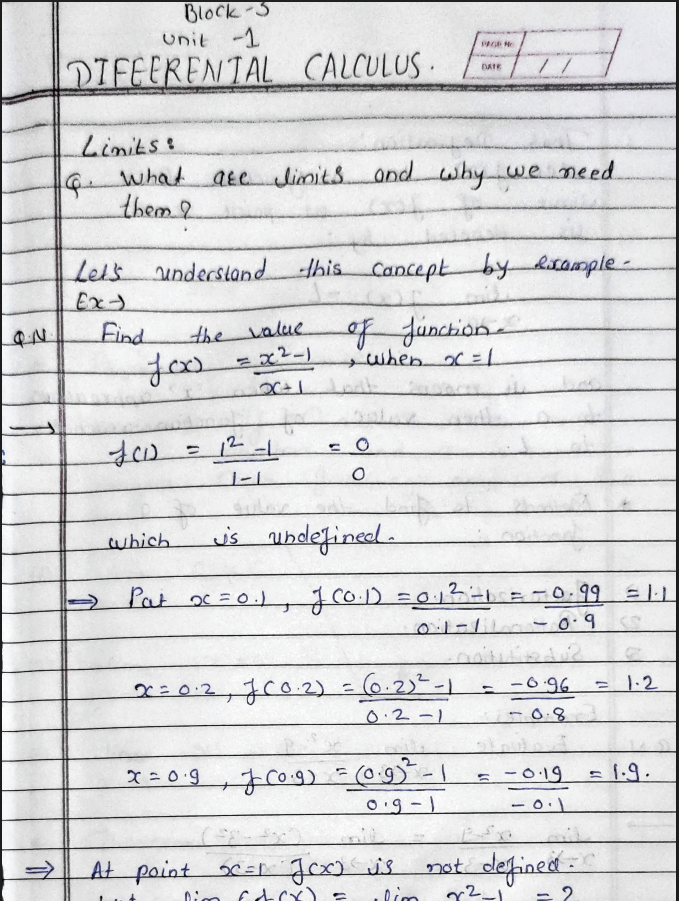 Block-5
Unit -1
DIFEERENTAL CALCULUS.
PAGE No
DATE / /
Limits:
Q. What are limits and why we need
them?
Let's understand this concept by example-
Ex→
Q.N. Find the value of function-
f(x) = x²-1 / x-1 , when x=1
→
f(1) = 1²-1 / 1-1 = 0 / 0
which is undefined.
⇒ Put x=0.1, f(0.1) = 0.1²-1 / 0.1-1 = -0.99 / -0.9 = 1.1
x=0.2, f(0.2) = (0.2)²-1 / 0.2-1 = -0.96 / -0.8 = 1.2
x=0.9, f(0.9) = (0.9)²-1 / 0.9-1 = -0.19 / -0.1 = 1.9.
⇒ At point x=1 f(x) is not defined.
x²-1 = 2